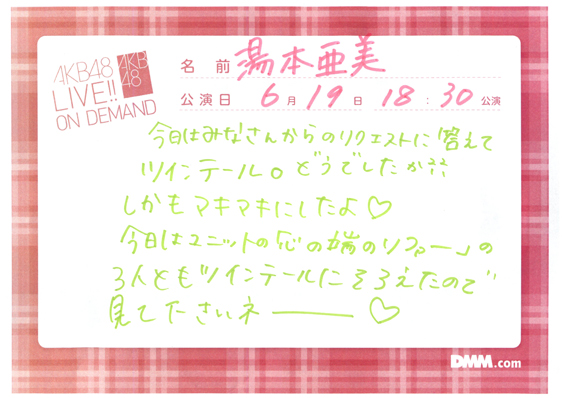 AKB48
LIVE!!
ON DEMAND
AKB
48
名前 湯本亜美
公演日 6月19日 18:30公演
今日はみなさんからのリクエストに答えて
ツインテール。どうでしたか??
しかもマキマキにしたよ♡
今日はユニットの「心の端のソファー」の
3人ともツインテールにそろえたので
見て下さいネー♡
DMM.com